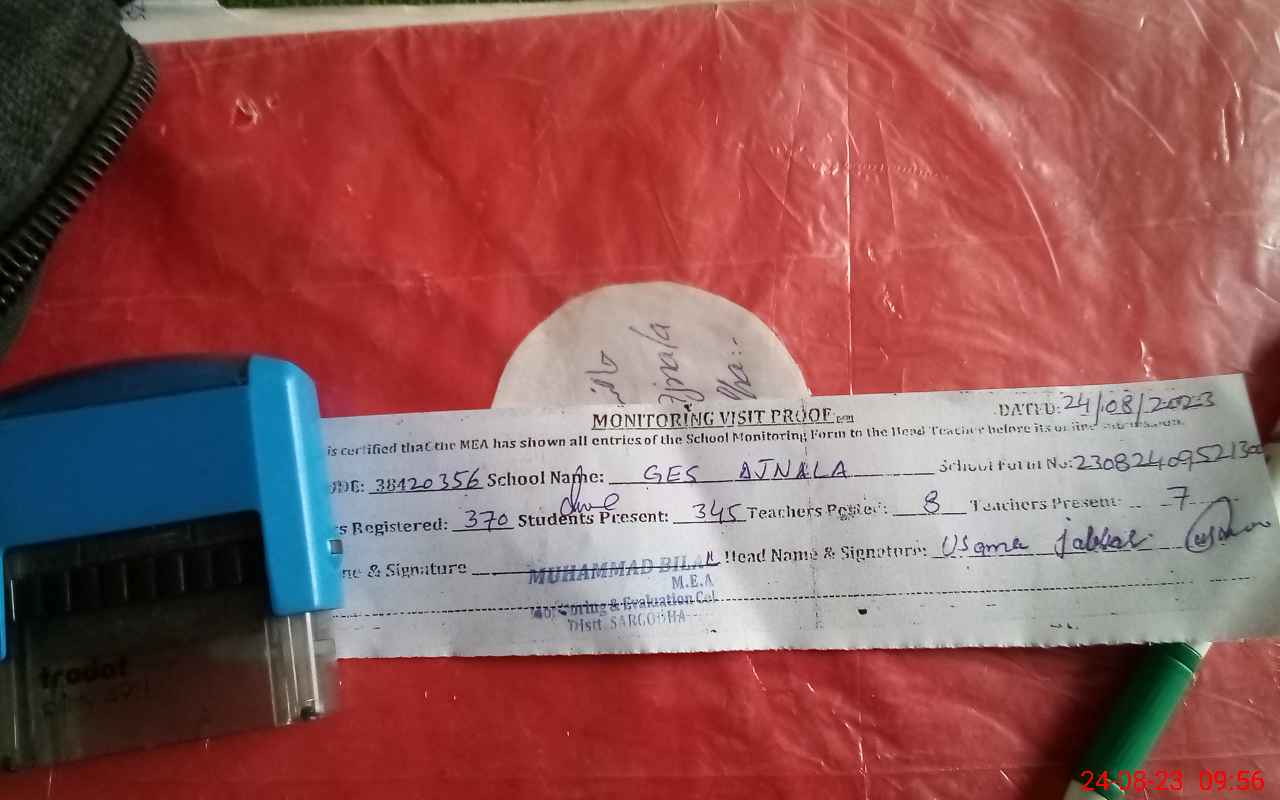 Ajnala
MONITORING VISIT PROOF
DATED: 24/08/2023
is certified that the MEA has shown all entries of the School Monitoring Form to the Head Teacher before its
38420356 School Name: GES AJNALA School Form No: 2308240952130
s Registered: 370 Students Present: 345 Teachers Posted: 8 Teachers Present: 7
ne & Signature Head Name & Signature: Usama jabbar
MUHAMMAD BILAL
M.E.A
Monitoring & Evaluation Cel
Distt. SARGODHA
trodat
24-08-23 09:56